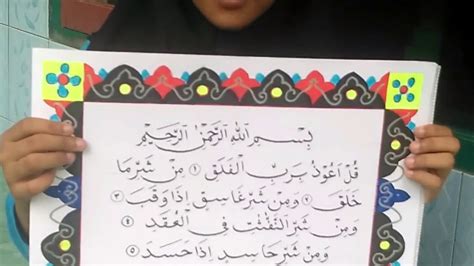 بِسْمِ اللهِ الرَّحْمٰنِ الرَّحِيْمِ
قُلْ اَعُوْذُ بِرَبِّ الْفَلَقِ ١ مِنْ شَرِّ مَا
خَلَقَ ٢ وَمِنْ شَرِّ غَاسِقٍ اِذَا وَقَبَ ٣
وَمِنْ شَرِّ النَّفّٰثٰتِ فِى الْعُقَدِ ٤
وَمِنْ شَرِّ حَاسِدٍ اِذَا حَسَدَ ٥